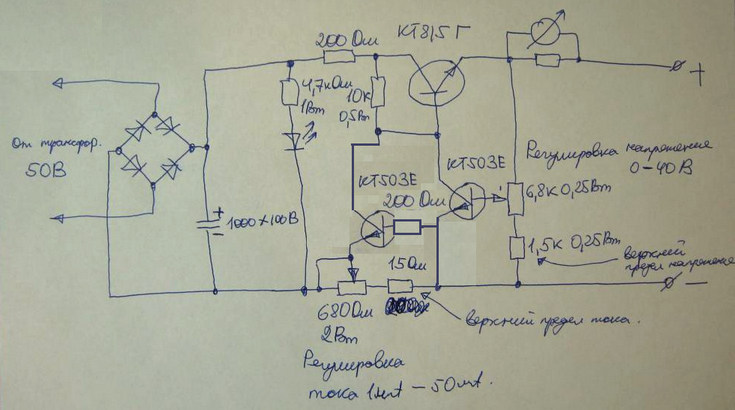 200 Ом
КТ815Г
4,7кОм
1Вт
10к
0,5Вт
+
От трансфор.
50В
КТ503Е
Регулировка напряжения
0-40В
КТ503Е
200 Ом
6,8к 0,25Вт
+
1000 х 100В
-
1,5к 0,25Вт
верхний
предел напряжения
15Ом
-
680Ом
2Вт
верхний предел тока.
Регулировка
тока 1мА - 50мА.